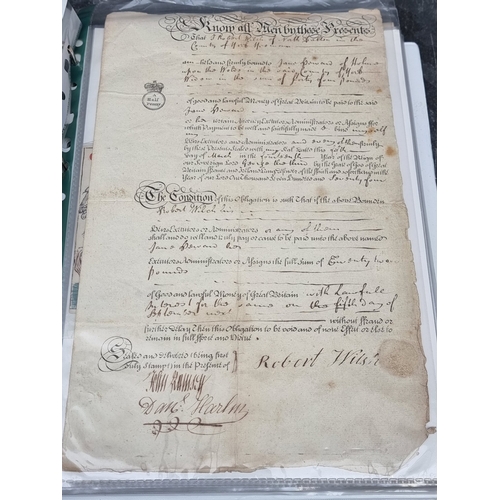 Know all Men by these Presents
That I Robert
County of York
am held and firmly bound to Jane
upon the Wolds in the said County of York
Widow in the sum of Forty four Pounds
of good and lawful Money of Great Britain to be paid to the said
Jane
or her certain Attorney Executors Administrators or Assigns for
which Payment to be well and faithfully made I bind my self
my
Heirs Executors and Administrators and every of them firmly
by these Presents Sealed with my Seal Dated this
Day of March in the fourteenth Year of the Reign of
our Sovereign Lord George the third by the Grace of God of Great
Britain France and Ireland King Defender of the Faith and so forth and in the
Year of our Lord One Thousand Seven Hundred and Seventy four
The Condition of this Obligation is such That if the above Bounden
Robert Wilson his
Heirs Executors or Administrators or any of them
shall and do well and truly pay or cause to be paid unto the above named
Jane her
Executors Administrators or Assigns the full Sum of Twenty two
Pounds
of Good and lawful Money of Great Britain with lawfull
Interest for the same on the fifth day of
next
without Fraud or
further Delay Then this Obligation to be void and of none Effect or else to
remain in full Force and Virtue
Sealed and delivered (being first
duly Stampt) in the Presence of
Robert Wilson
John
Danl. Harlin